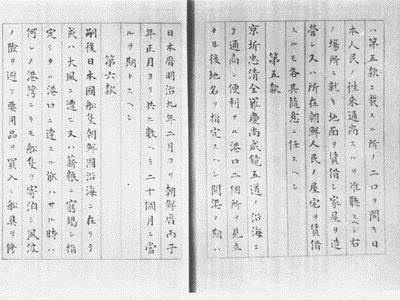 ハ第五款ニ載スル所ノ二口ヲ開キ日
本人民ノ往来通商スルヲ准聴スヘシ右
ノ場所ニ就キ地面ヲ賃借シ家屋ヲ造
営シ又ハ所在朝鮮人民ノ屋宅ヲ賃借
スルモ各其随意ニ任スヘシ
第五款
京圻忠清全羅慶尚咸鏡五道ノ沿海ニ
テ通商ニ便利ナル港口二個所ヲ見立
タル後地名ヲ指定スヘシ開港ノ期ハ
日本暦明治九年二月ヨリ朝鮮暦丙子
年正月ヨリ共ニ數ヘテ二十個月ニ當
ルヲ期トスヘシ
第六款
嗣後日本國船隻朝鮮國沿海ニ在リテ
或ハ大風ニ遭ヒ又ハ薪粮ニ窮竭シ指
定シタル港口ニ達スル能ハサル時ハ
何レノ港湾ニテモ船隻ヲ寄泊シ風波
ノ険ヲ避ケ要用品ヲ買入レ船具ヲ修